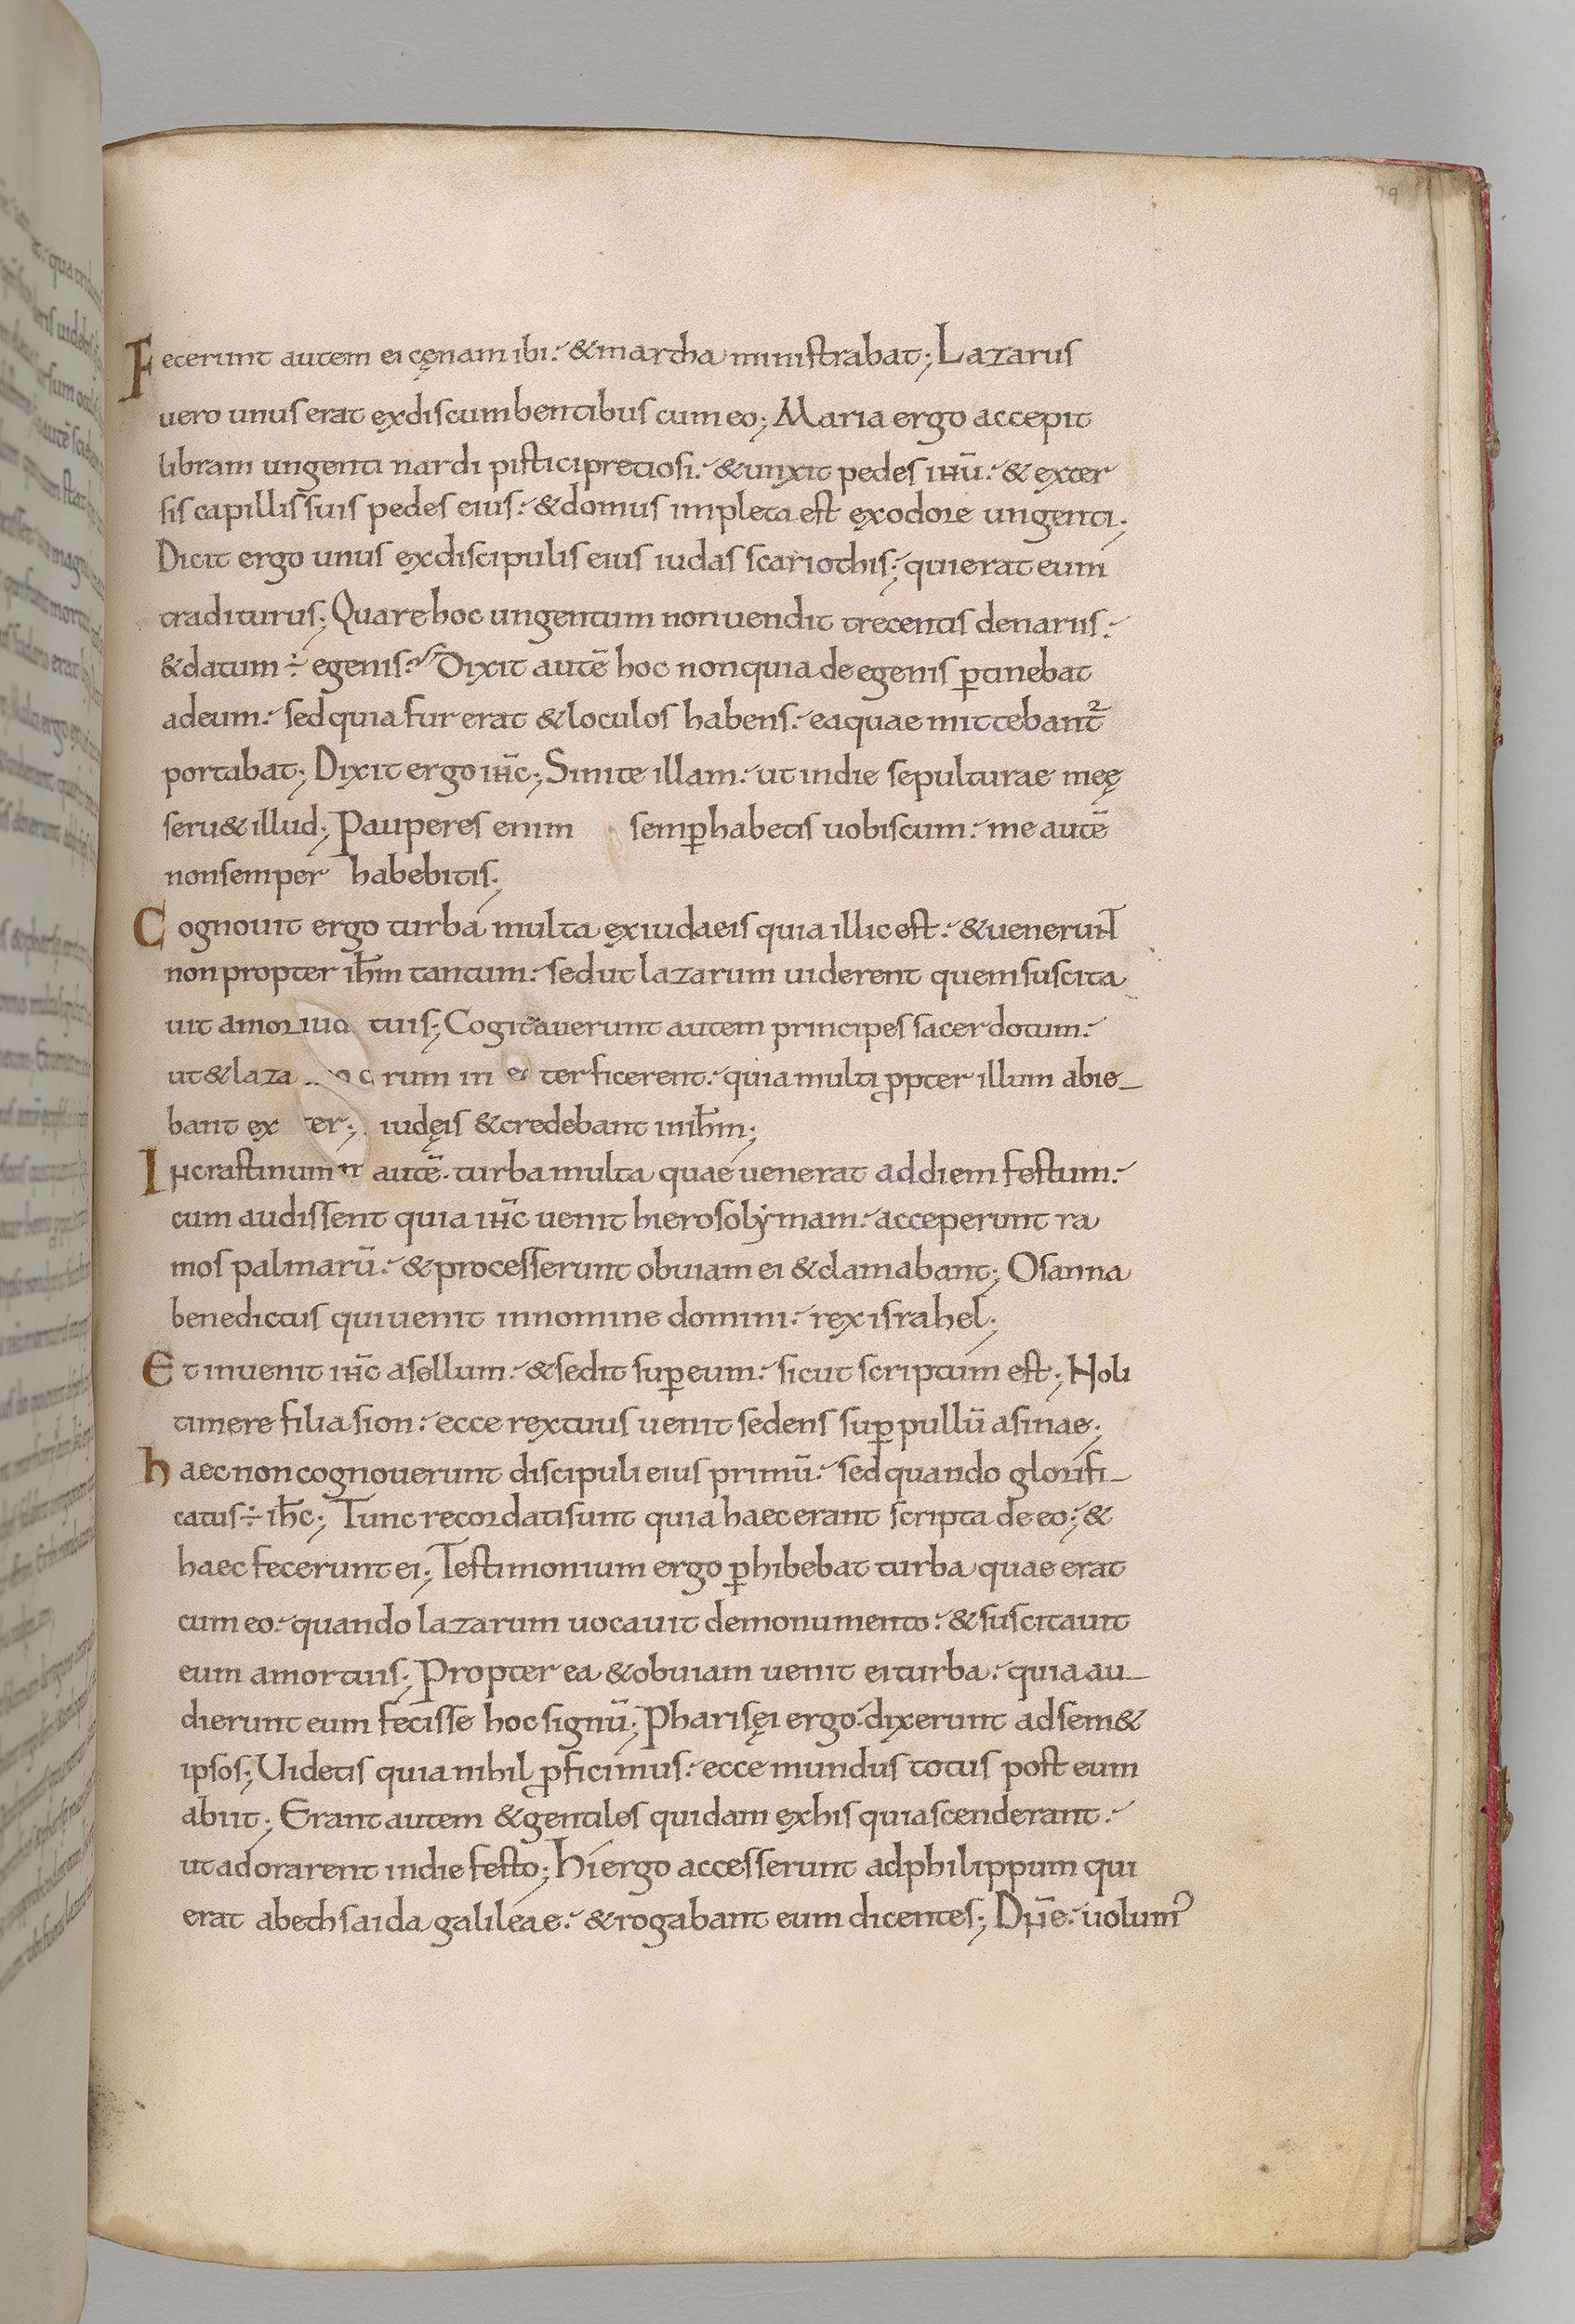 79
Fecerunt autem ei cęnam ibi. & martha ministrabat; Lazarus
uero unus erat ex discumbentibus cum eo; Maria ergo accepit
libram ungenti nardi pistici pretiosi. & unxit pedes iħū. & exter
sis capillis suis pedes eius. & domus impleta est ex odore ungenti;
Dicit ergo unus ex discipulis eius iudas scariothis; qui erat eum
traditurus; Quare hoc ungentum non uendit trecentis denariis.
& datum ÷ egenis? Dixit autē hoc non quia de egenis ꝑtinebat
ad eum. sed quia fur erat & loculos habens. ea quae mittebant᷑
portabat; Dixit ergo iħc; Sinite illam. ut in die sepulturae meę
seru& illud; Pauperes enim semꝑ habetis uobiscum. me autē
non semper habebitis;
Cognouit ergo turba multa ex iudaeis quia illic est. & uenerunt
non propter iħm tantum. sed ut lazarum uiderent quem suscita
uit a mor tuis; Cogitauerunt autem principes sacerdotum.
ut & laza rum in terficerent. quia multi ꝓpter illum abie-
bant ex iudęis & credebant in iħm;
In crastinum autē. turba multa quae uenerat ad diem festum.
cum audissent quia iħc uenit hierosolẏmam. acceperunt ra
mos palmarū. & processerunt obuiam ei & clamabant; Osanna
benedictus qui uenit in nomine domini. rex israhel;
Et inuenit iħc asellum. & sedit suꝑ eum. sicut scriptum est; Noli
timere filia sion. ecce rex tuus uenit sedens suꝑ pullū asinae;
haec non cognouerunt discipuli eius primū. sed quando glorifi-
catus ÷ iħc; Tunc recordati sunt quia haec erant scripta de eo; &
haec fecerunt ei; Testimonium ergo ꝑhibebat turba quae erat
cum eo. quando lazarum uocauit de monumento. & suscitauit
eum a mortuis; Propter ea & obuiam uenit ei turba. quia au-
dierunt eum fecisse hoc signū; Pharisęi ergo. dixerunt ad sem&
ipsos; Uidetis quia nihil ꝓficimus. ecce mundus totus post eum
abiit; Erant autem & gentiles quidam ex his qui ascenderant.
ut adorarent in die festo; hi ergo accesserunt ad philippum qui
erat a bethsaida galileae. & rogabant eum dicentes; Dn̄e. uolum᾿